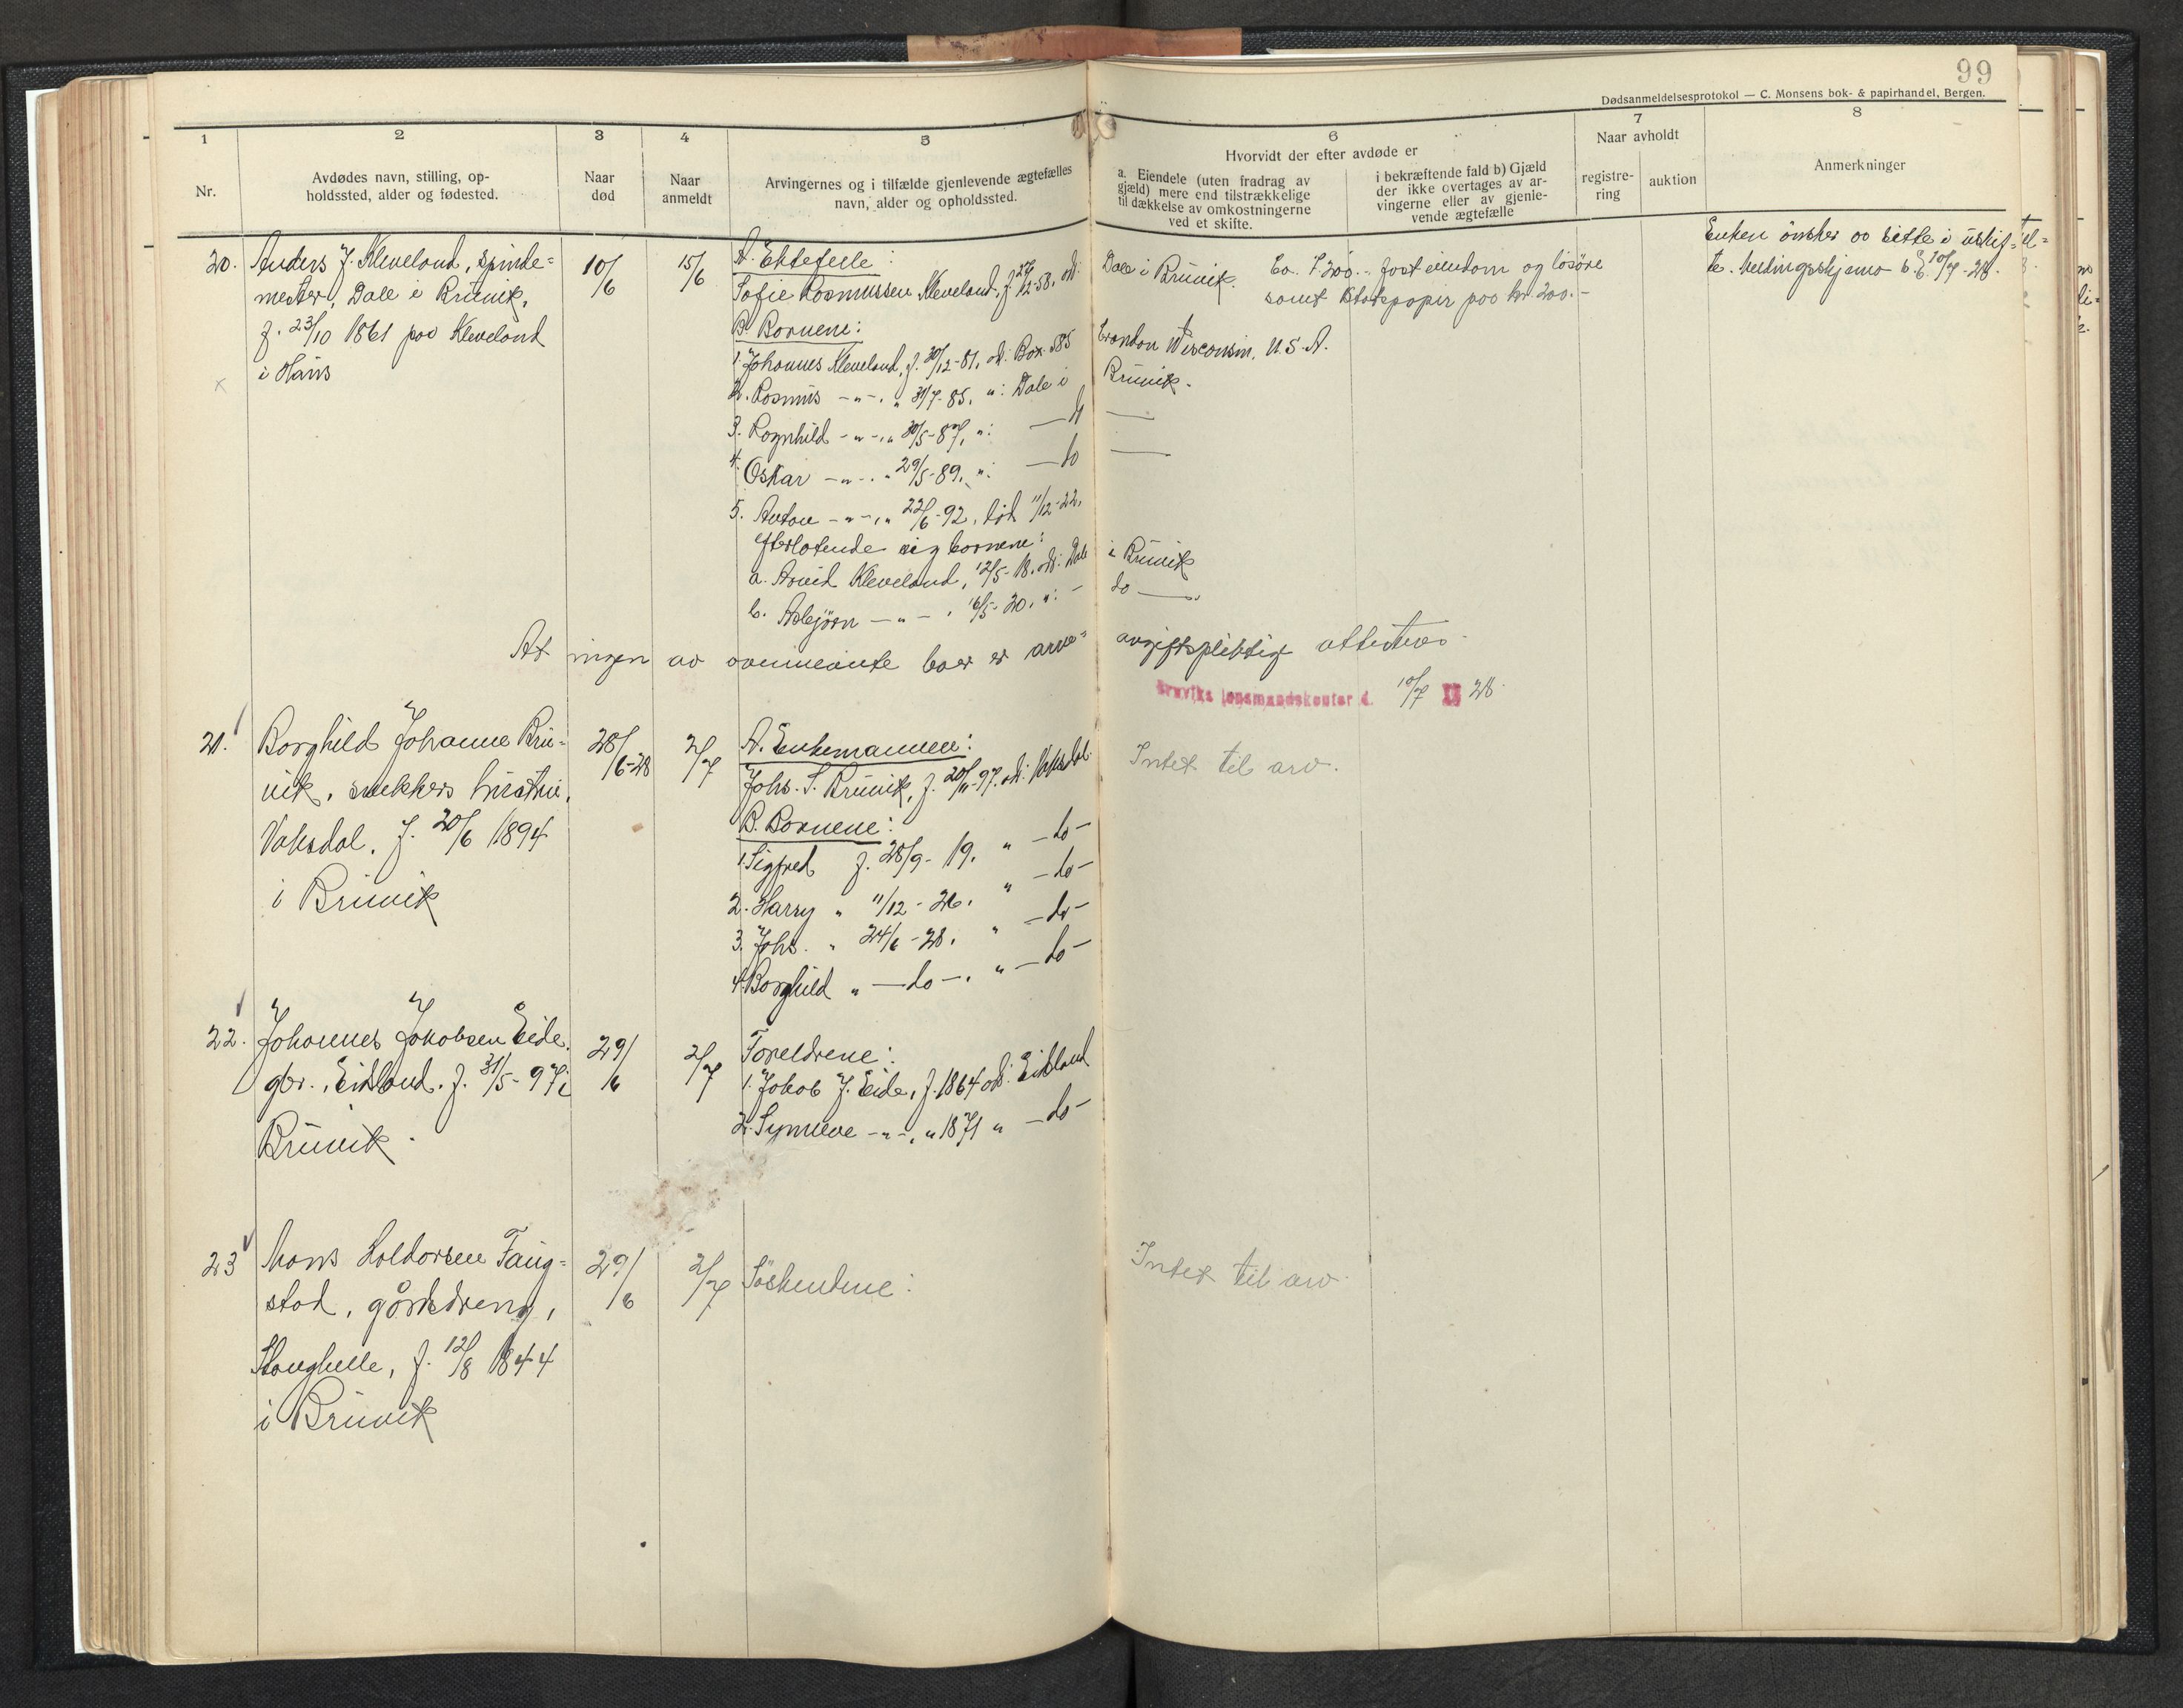 99
Dødsanmeldelsesprotokol — C. Monsens bok- & papirhandel, Bergen.
1
Nr.
2
Avdødes navn, stilling, op-
holdssted, alder og fødested.
3
Naar
død
4
Naar
anmeldt
5
Arvingernes og i tilfælde gjenlevende ægtefælles
navn, alder og opholdssted.
6
Hvorvidt der efter avdøde er
a. Eiendele (uten fradrag av
gjæld) mere end tilstrækkelige
til dækkelse av omkostningerne
ved et skifte.
i bekræftende fald b) Gjæld
der ikke overtages av ar-
vingerne eller av gjenle-
vende ægtefælle
7
Naar avholdt
registre-
ring
auktion
8
Anmerkninger
20.
Anders J. Kleveland, spinde=
mester, Dale i Brüvik,
f. 23/10 1861 paa Kleveland
i Haüs
10/6
15/6
A. Ektefelle:
Sofie Rasmussen Kleveland, f. 27/12-58, adr. Dale i Brüvik.
B. Barnene:
1. Johannes Kleveland, f. 30/12-81, adr. Box 585 Crandon Wisconsin, U.S.A.
2. Rasmüs -"-, " 31/7-85, ": Dale i Brüvik.
3. Ragnhild -"-, " 30/5-87, ": — d —
4. Oskar -"-, " 29/5-89, ": — do —
5. Anton -"-, " 22/6-92, död 11/12-22,
efterlatende sig barnene:
a. Arvid Kleveland, 12/5-18, adr: Dale i Brüvik
b. Asbjörn -"-, 16/5-20, ": - do —
Ca. 7200.- fast eiendom og lösöre
samt Statspapir paa kr 200.-
Enken önsker aa sitte i üskif=
te. Meldingsskjema 10/7-28.
At ingen av ovennevnte boer er arve=avgiftspliktig attesteres
Bruviks lensmandskontor d. 10/7 19 28.
21.
Borghild Johanne Brü=
vik, snekkers hüstrü,
Vaksdal, f. 20/6 1894
i Brüvik
28/6-28
2/7
A. Enkemannen:
Johs. S. Brüvik, f. 20/11-97. adr: Vaksdal.
B. Barnene:
1. Sigfred f. 28/9-19, " -do-
2. Harry " 11/12-26, " -do-
3. Johs. " 24/6-28, " -do-
4. Borghild " -do-, " -do-
Intet til arv.
22.
Johannes Jakobsen Eide,
gbr., Eikland, f. 31/5-97 i
Brüvik.
29/6
2/7
Foreldrene:
1. Jakob J. Eide, f. 1864 adr: Eikland
2. Synneve -"-, " 1871 " -do-
23
Mons Haldorsen Faüg=
stad, gårdsdreng,
Stanghelle, f. 12/8 1844
i Brüvik
29/6
2/7
Söskendene:
Intet til arv.